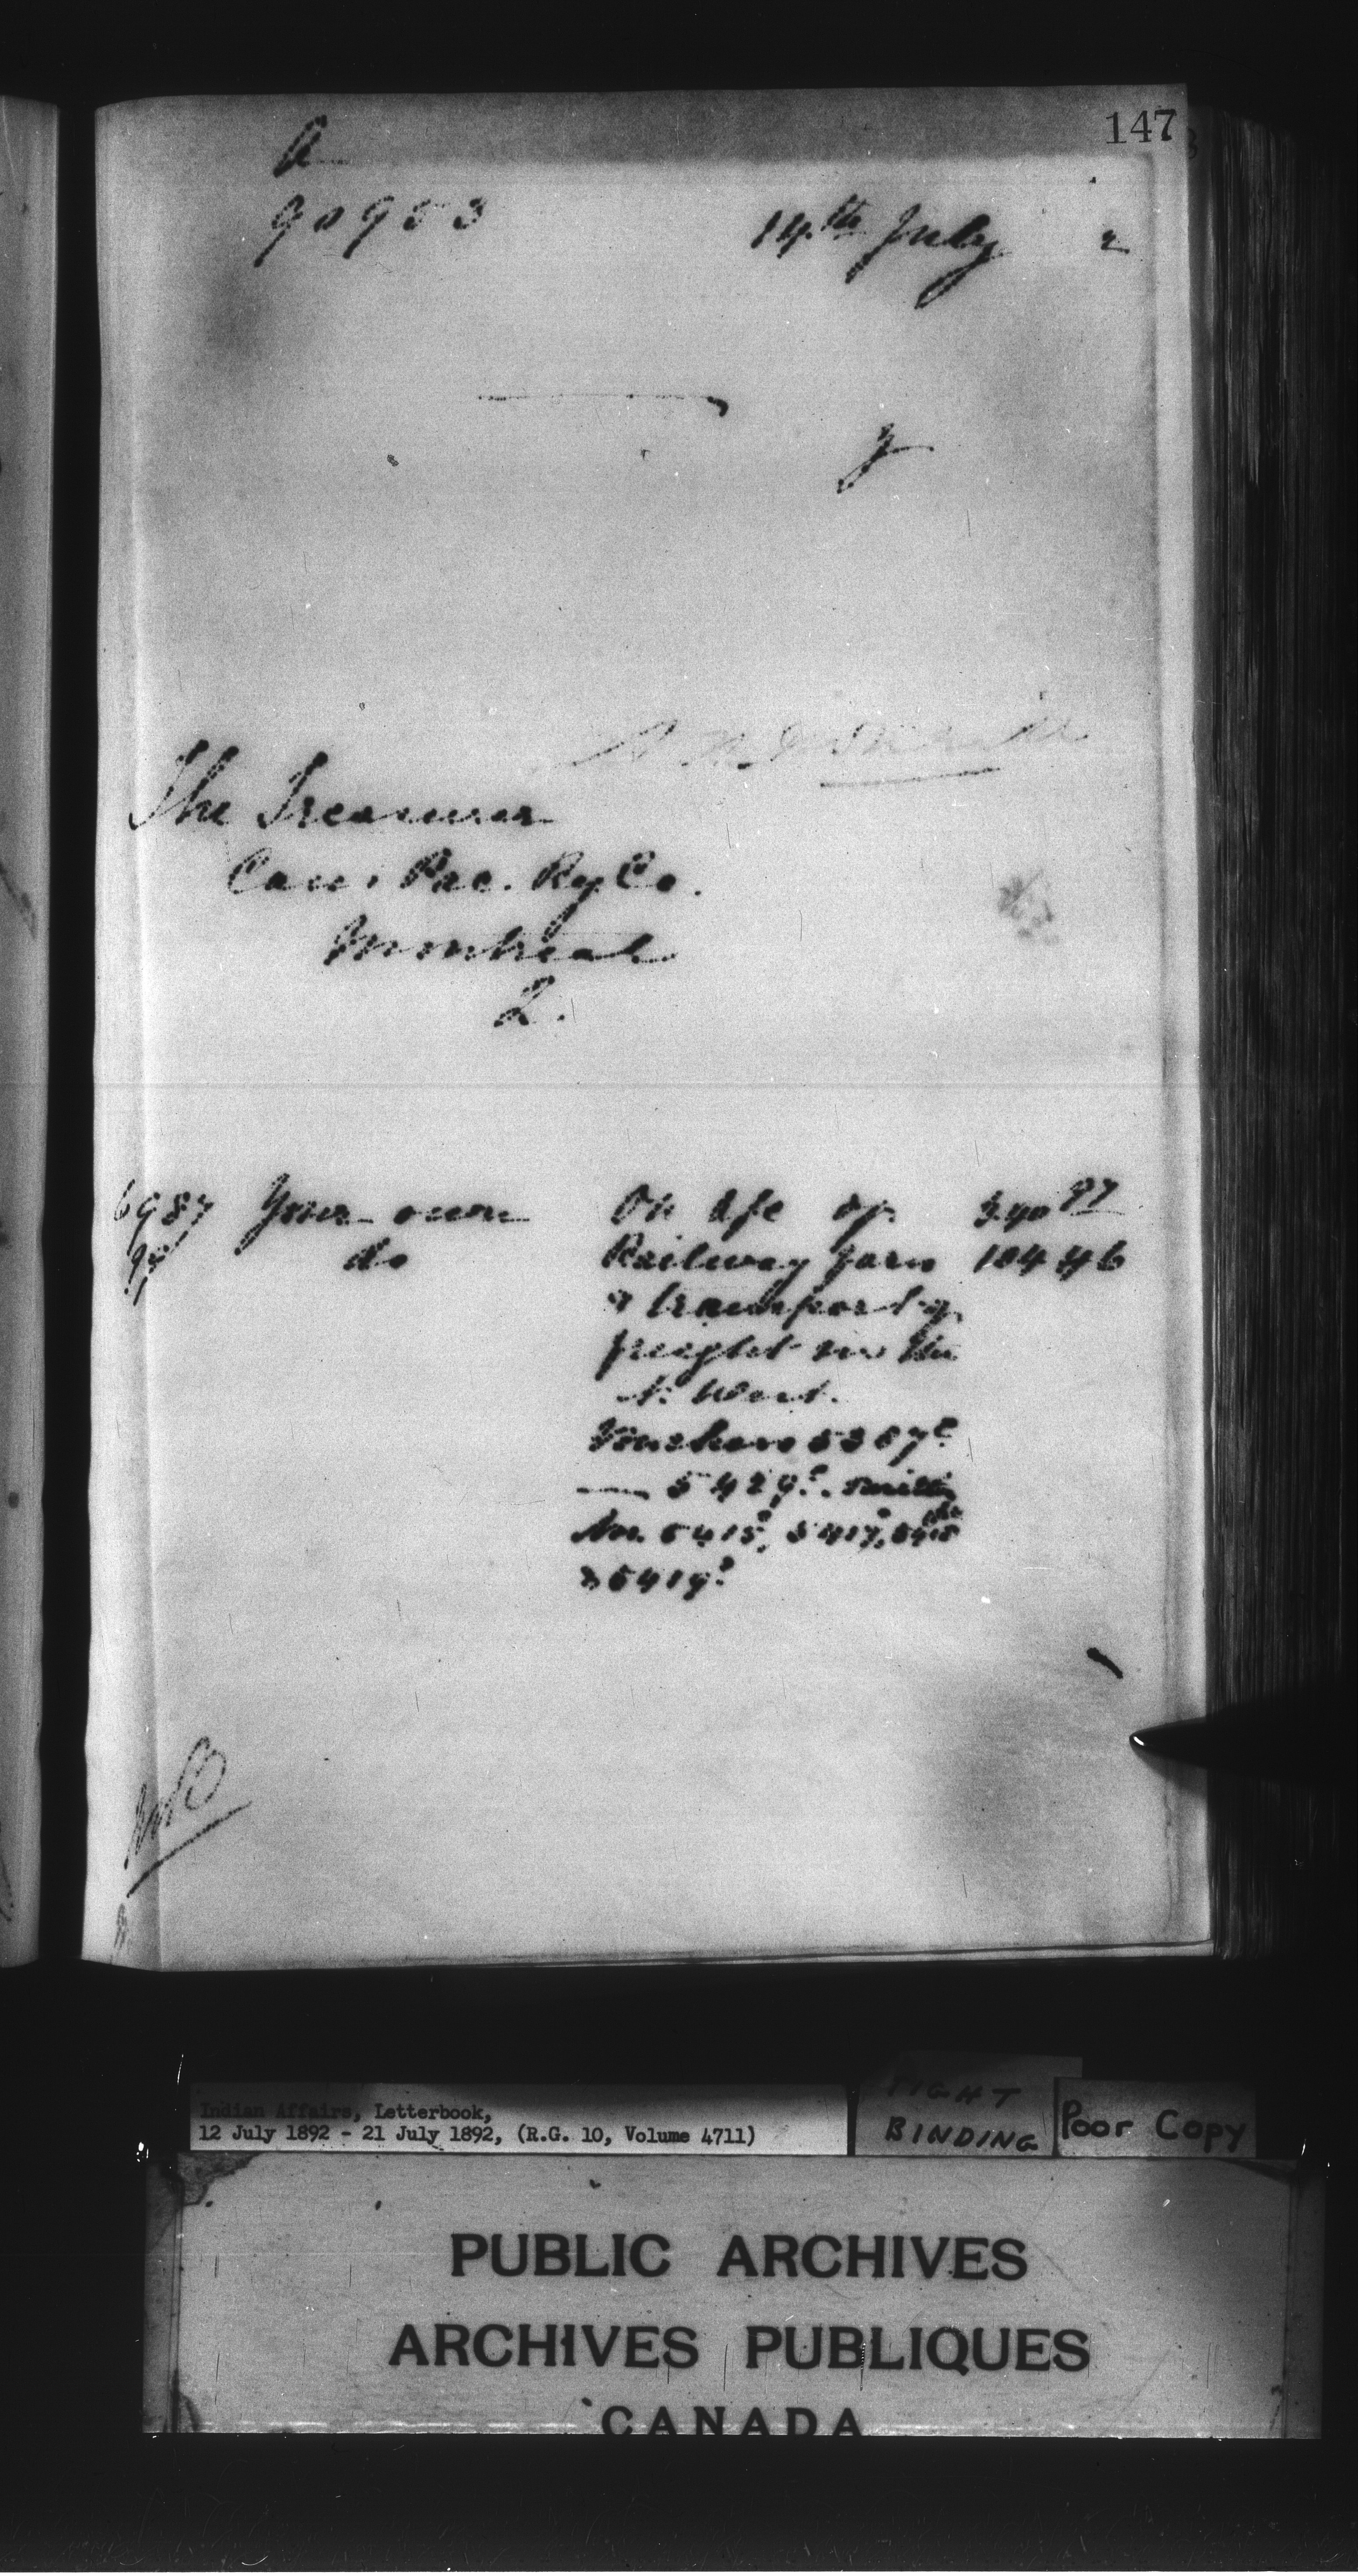 147
A
90953
14th July 2
y
The Treasurer
Can. Pac. Ry Co.
Montreal
2.
6987 Your own On a/c of 340 97
98 do Railway fares 104 46
& transport of
freight in the
N. West.
Vouchers 5387
5429
No. 5415, 5417, 5418
& 5419
Indian Affairs, Letterbook,
12 July 1892 - 21 July 1892, (R.G. 10, Volume 4711)
TIGHT
BINDING
Poor Copy
PUBLIC ARCHIVES
ARCHIVES PUBLIQUES
CANADA